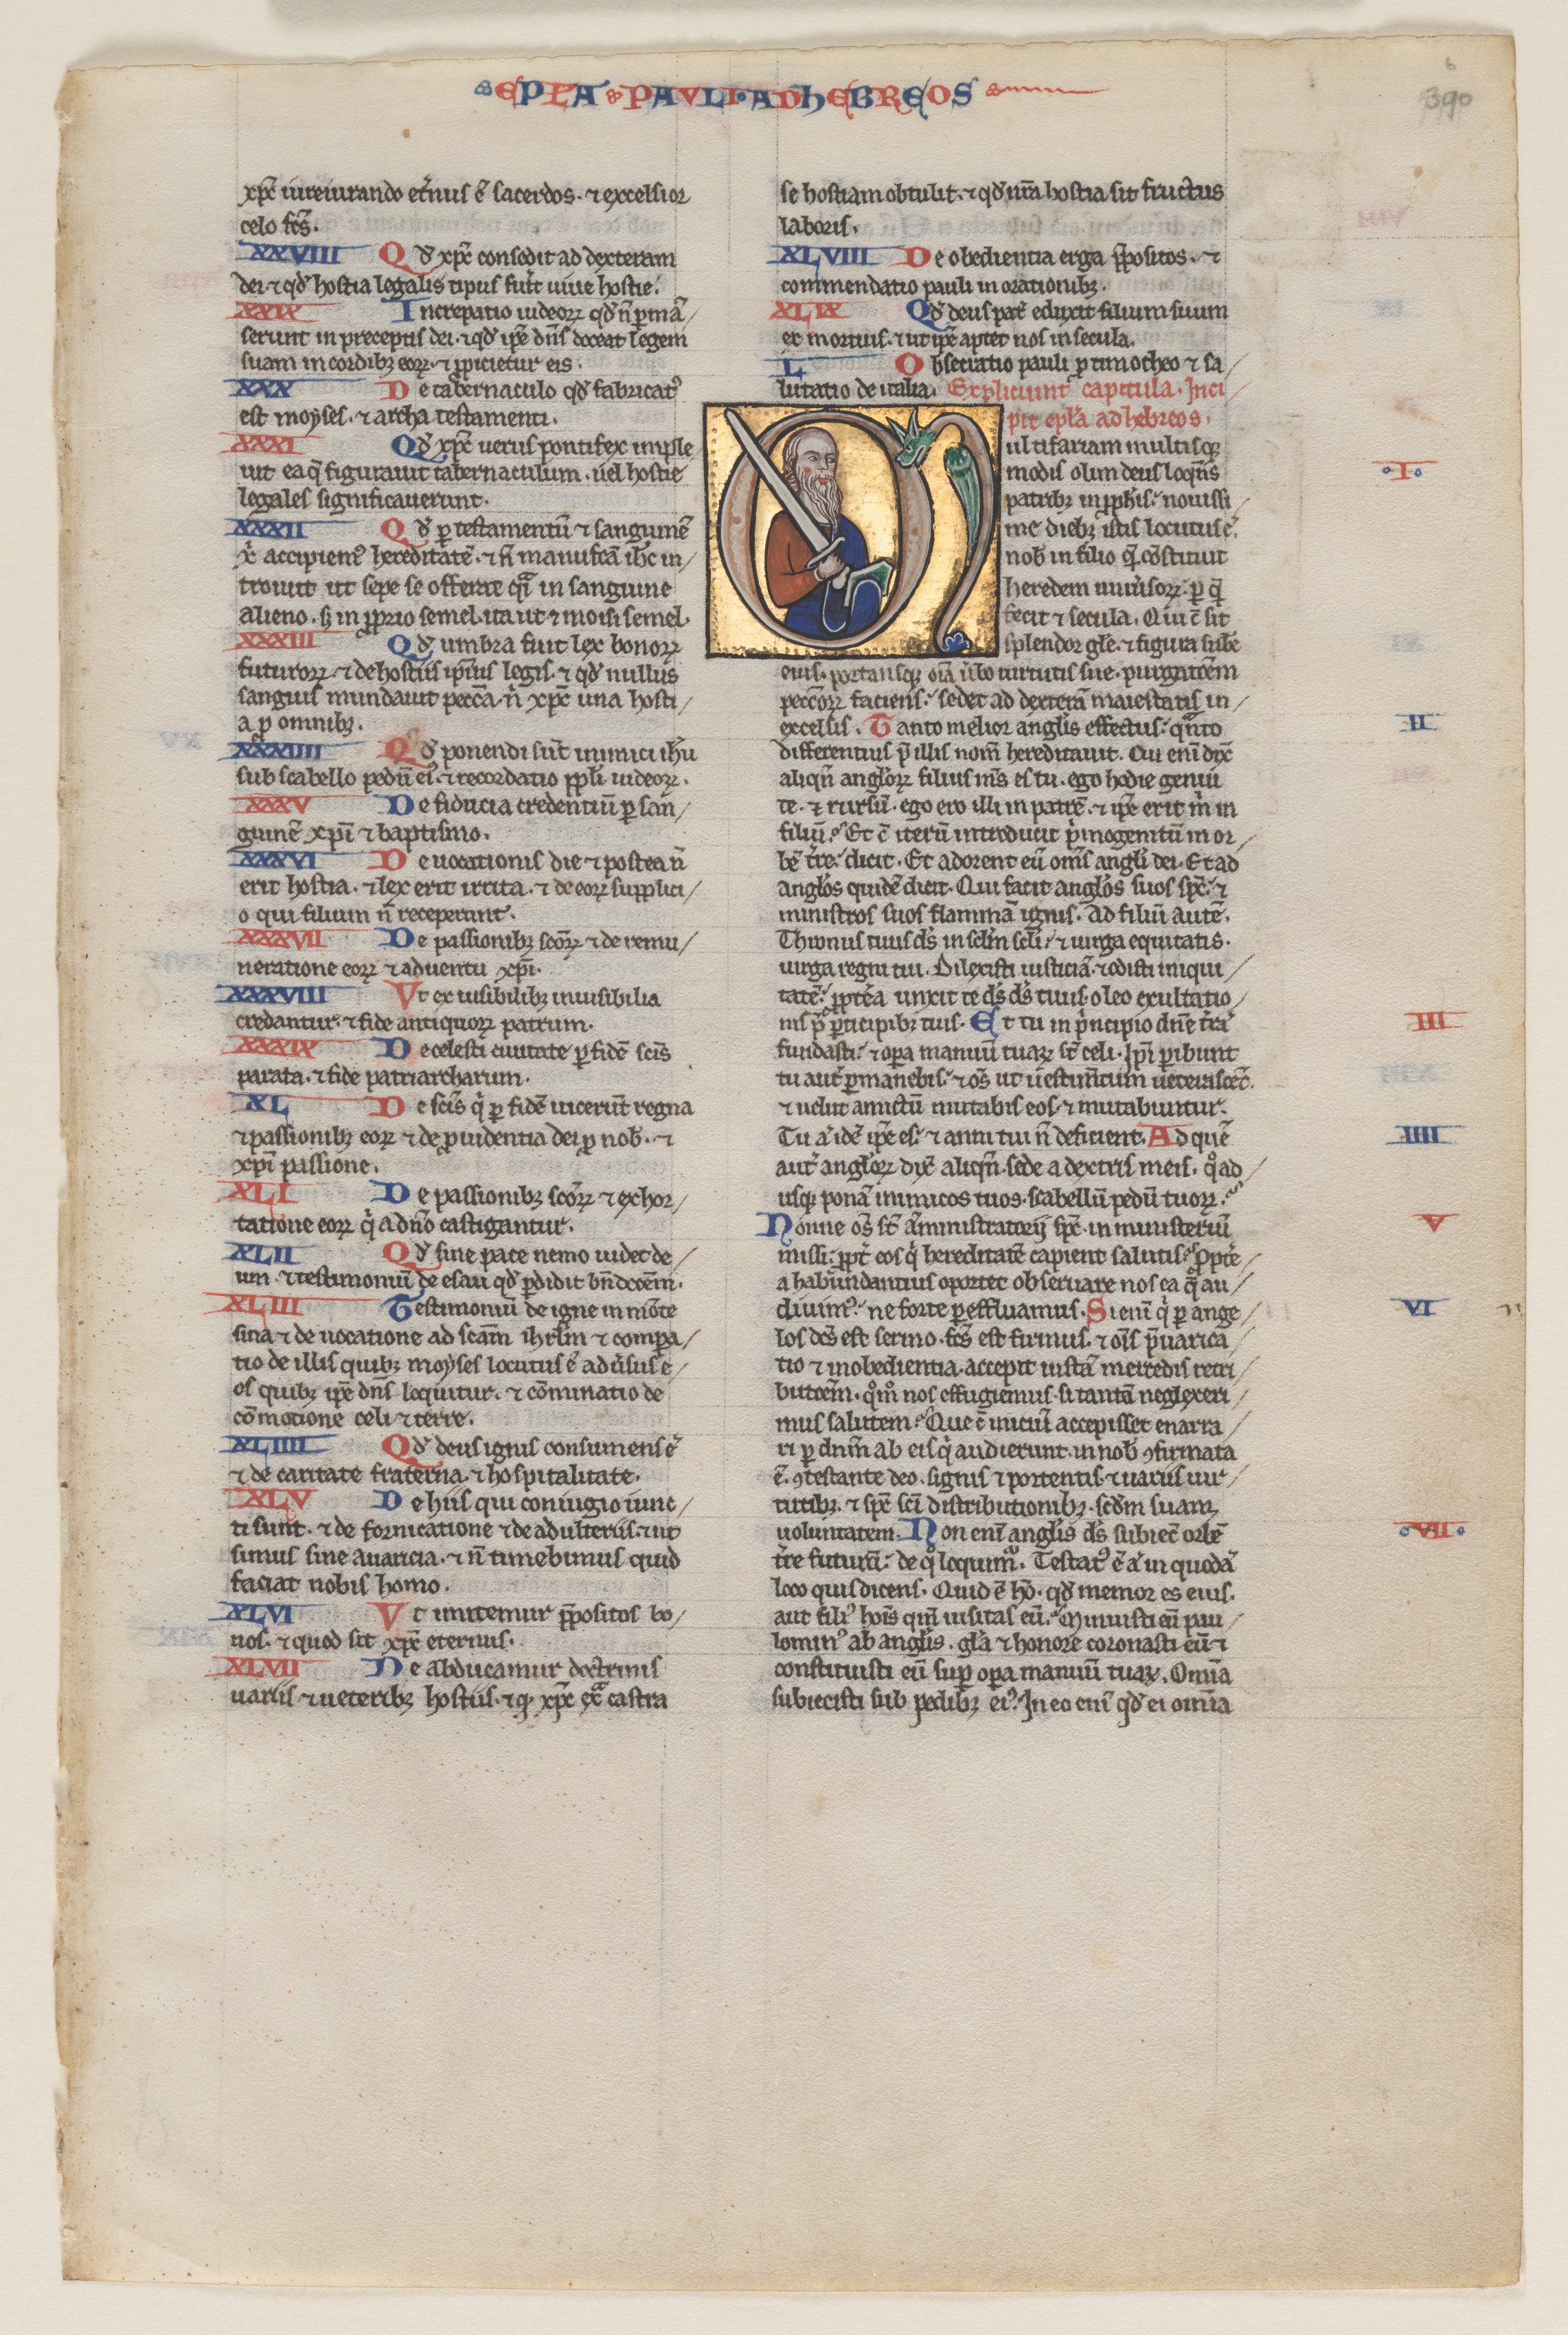 EPLA PAVLI AD hEBREOS
390
xpc iureiurando et̉nus ē sacerdos. ⁊ excelsior
celo fc̄s.
XXVIII Qd̉ xpc consedit ad dexteram
dei ⁊ qd̉ hostia legalis tipus fuit uiue hostie.
XXIX Increpatio iudeoꝝ qd̉ n̄ ꝑmā
serunt in preceptis dei. ⁊ qd̉ ip̄e dn̄s doceat legem
suam in cordibꝫ eoꝝ. ⁊ ꝓpicietur eis.
XXX De tabernaculo qd̉ fabricat᷒
est moyses. ⁊ archa testamenti.
XXXI Qd̉ xpc uerus pontifex imple
uit ea q̄ figurauit tabernaculum. uel hostie
legales significauerunt.
XXXII Qd̉ ꝑ testamentū ⁊ sanguinē
accipiem᷒ hereditatē. ⁊ n̄ manufcā ih̄c in
troiuit ut sepe se offerret in sanguine
alieno. sꝫ in ꝓprio semel. ita ut ⁊ moisi semel.
XXXIII Qd̉ umbra fuit lex bonoꝝ
futuroꝝ. ⁊ de hostiis ipsius legis. ⁊ qd̉ nullus
sanguis mundauit peccā. n̉ xpc una hosti
a ꝓ omnibꝫ.
XXXIIII Qd̉ ponendi sūt inimici ih̄u
sub scabello pedū ei᷒. ⁊ recordatio ppl̄i iudeoꝝ.
XXXV De fiducia credentiū ꝑ san
guinē xp̄i ⁊ baptismo.
XXXVI De uocationis die ⁊ postea n̄
erit hostia. ⁊ lex erit irrita. ⁊ de eoꝝ supplici
o qui filium n̄ receperunt.
XXXVII De passionibꝫ sc̄oꝝ ⁊ de remu
neratione eoꝝ ⁊ aduentu xp̄i.
XXXVIII Vt ex uisibilibꝫ inuisibilia
credantur. ⁊ fide antiquoꝝ patrum.
XXXIX De celesti ciuitate ꝑ fidē sc̄is
parata. ⁊ fide patriarcharum.
XL De sc̄is q̉ ꝑ fidē uicerūt regna
⁊ passionibꝫ eoꝝ ⁊ de ꝓuidentia dei ꝓ nob̄. ⁊
xp̄i passione.
XLI De passionibꝫ sc̄oꝝ ⁊ exhor
tatione eoꝝ q̉ a dn̄o castigantur.
XLII Qd̉ sine pace nemo uidet de
um. ⁊ testimoniū de esau qd̉ ꝑdidit bn̄dcc̄em.
XLIII Testimoniū de igne in mōte
sina ⁊ de uocatione ad scām ihrl̄m ⁊ compa
tio de illis quibꝫ moyses locutus ē aduisus e
os quibꝫ ip̄e dn̄s loquitur. ⁊ cōminatio de
cōmotione celi ⁊ terre.
XLIIII Qd̉ deus ignis consumens ē
⁊ de caritate fraterna. ⁊ hospitalitate.
XLV De hiis qui coniugio iunc
ti sunt. ⁊ de fornicatione ⁊ de adulteriis. ⁊ ut
simus sine auaricia. ⁊ n̄ timebimus quid
faciat nobis homo.
XLVI Vt imitemur p̄positos bo
nos. ⁊ quod sit xpc eternus.
XLVII Ne abducamur doctrinis
uariis ⁊ ueteribꝫ hostiis. ⁊ q xpc ext̉ castra
se hostiam obtulit. ⁊ qd̉ nr̄a hostia sit fructus
laboris.
XLVIII De obedientia erga p̄positos. ⁊
commendatio pauli in orationibꝫ.
XLIX Qd̉ deus pat̉ eduxit filium suum
ex mortuis. ⁊ ut ip̄e aptet nos in secula.
L Obsecratio pauli ꝓ timotheo ⁊ sa
lutatio de italia. Expliciunt capitula. Inci
pit epl̄a ad hebreos.
Multifariam multisqꝫ
modis olim deus loq̄ns
patribꝫ in ꝓphis. nouissi
me diebꝫ istis locutus ē
nob̄ in filio q̄ cōstituit
heredem uniūsoꝝ. ꝑ q̄
fecit ⁊ secula. Qui c̄ sit
splendor gl̄e. ⁊ figura sub̄e
eius. portansqꝫ oīa ūbo uirtutis sue. purgatōem
pecc̄oꝝ faciens. sedet ad dexterā maiestatis in
excelsis. Tanto melior angl̄is effectus. q̄nto
differentius p̄ illis nom̄ hereditauit. Cui enī dix̄
aliqn̄ angl̄oꝝ filius m̄s es tu. ego hodie genui
te. ⁊ rursū. ego ero illi in patrē. ⁊ ip̄e erit m̉ in
filiū. Et c̄ iterū introducit p̉mogenitū in or
bē t̉re. dicit. Et adorent eū om̄s angl̄i dei. Et ad
angl̄os quidē dicit. Qui facit angl̄os suos sp̄c. ⁊
ministros suos flammā ignis. Ad filiū autē.
Thronus tuus ds̄ in sclm̄ scl̄i. ⁊ uirga equitatis.
uirga regni tui. Dilexisti iusticiā. ⁊ odisti iniqui
tatē. ꝓpt̉ea unxit te ds̄ ds̄ tuus. oleo exultatio
nis p̄ ꝑticipibꝫ tuis. Et tu in p̉ncipio dn̄e t̉rā
fundasti. ⁊ opa manuū tuaꝝ st̄ celi. Ip̄i ꝑibunt
tu aut̄ ꝑmanebis. ⁊ os̄ ut uestimtum ueterascēt.
⁊ uelut amictū mutabis eos. ⁊ mutabuntur.
Tu a᷒ idē ip̄e es. ⁊ anni tui n̄ deficient. Ad quē
aut̄ angl̄oꝝ dix̄ aliqn̄. sede a dextris meis. q̊ad
usqꝫ ponā inimicos tuos. scabellū pedū tuoꝝ.
Nonne os̄ st̄ āministratorij sp̄c. in ministeriū
missi. ꝓpt̉ eos q̉ hereditatē capient salutis. Propt̉e
a habundantius oportet obseruare nos ea q̄ au
diuim᷒. ne forte ꝑeffluamus. Si enī q̉ ꝑ ange
los dc̄s est sermo. fc̄s est firmus. ⁊ om̄s p̄uarica
tio ⁊ inobedientia. accepit iustā mercedis retri
butōem. q̊m̊ nos effugiemus. si tantā neglexeri
mus salutem. Que c̄ iniciū accepisset enarra
ri ꝑ dnm̄ ab eis q̉ audierunt. in nob̄ ꝯfirmata
ē. ꝯtestante deo. signis ⁊ portentis. ⁊ uariis uir
tutibꝫ. ⁊ sp̄c sc̄i distributionibꝫ. scd̄m suam
uoluntatem. Non enī angl̄is ds̄ subiec̄ orbē
t̉re futurū. de q̊ loquim᷒. Testat᷒ ē a᷒ in quodā
loco quis dicens. Quid ē ho̊. qd̉ memor es eius.
aut fili᷒ hoīs qm̄ uisitas eū. Minuisti eū pau
lomin᷒ ab angl̄is. gl̄a ⁊ honore coronasti eū ⁊
constituisti eū sup̄ opa manuū tuaꝝ. Omnia
subiecisti sub pedibꝫ ei᷒. In eo enī qd̉ ei omnia
I
II
III
IIII
V
VI
VII